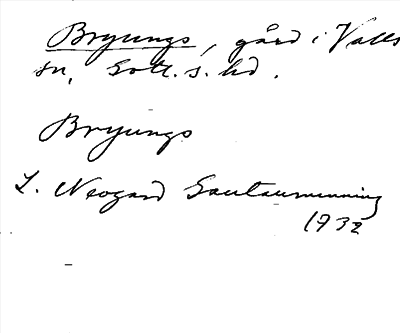 Bryungs, gård i Valls
sn, Gotl. s. hd.
Bryungs
L. Neogard Gautauminning
1932